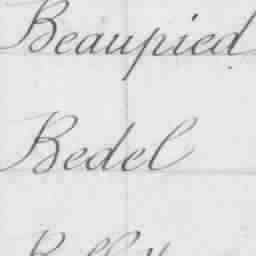 Beaupied
Bedel